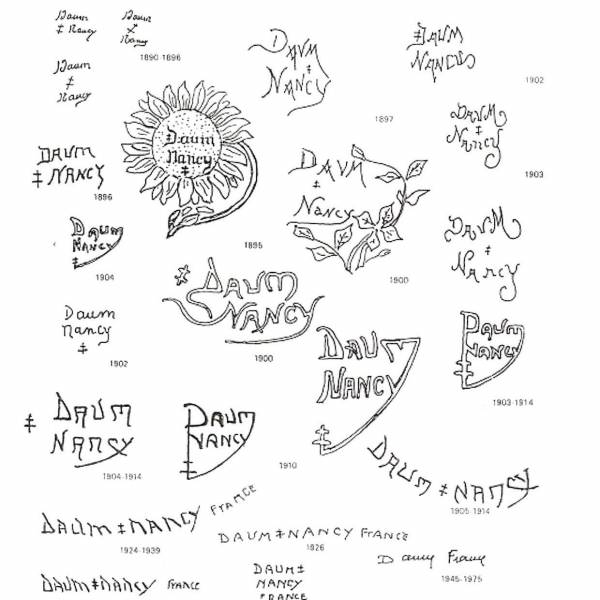 Daum
‡ Nancy
Daum
‡
Nancy
1890-1896
Daum
‡
Nancy
DAUM
‡
NANCY
1897
DAUM
‡ NANCY
1902
Daum
Nancy
‡
1895
DAUM
‡ NANCY
1896
DAUM
‡
NANCY
1903
DAUM
‡
NANCY
1900
DAUM
NANCY
‡
1904
DAUM
‡
NANCY
Daum
nancy
‡
1902
‡ DAUM
NANCY
1900
DAUM
NANCY
‡
1910
DAUM
NANCY
‡
1903-1914
‡ DAUM
NANCY
1904-1914
DAUM
NANCY
‡
DAUM ‡ NANCY
1905-1914
DAUM ‡ NANCY FRANCE
1924-1939
DAUM ‡ NANCY FRANCE
1926
Daum France
1945-1975
DAUM ‡ NANCY FRANCE
DAUM ‡
NANCY
FRANCE